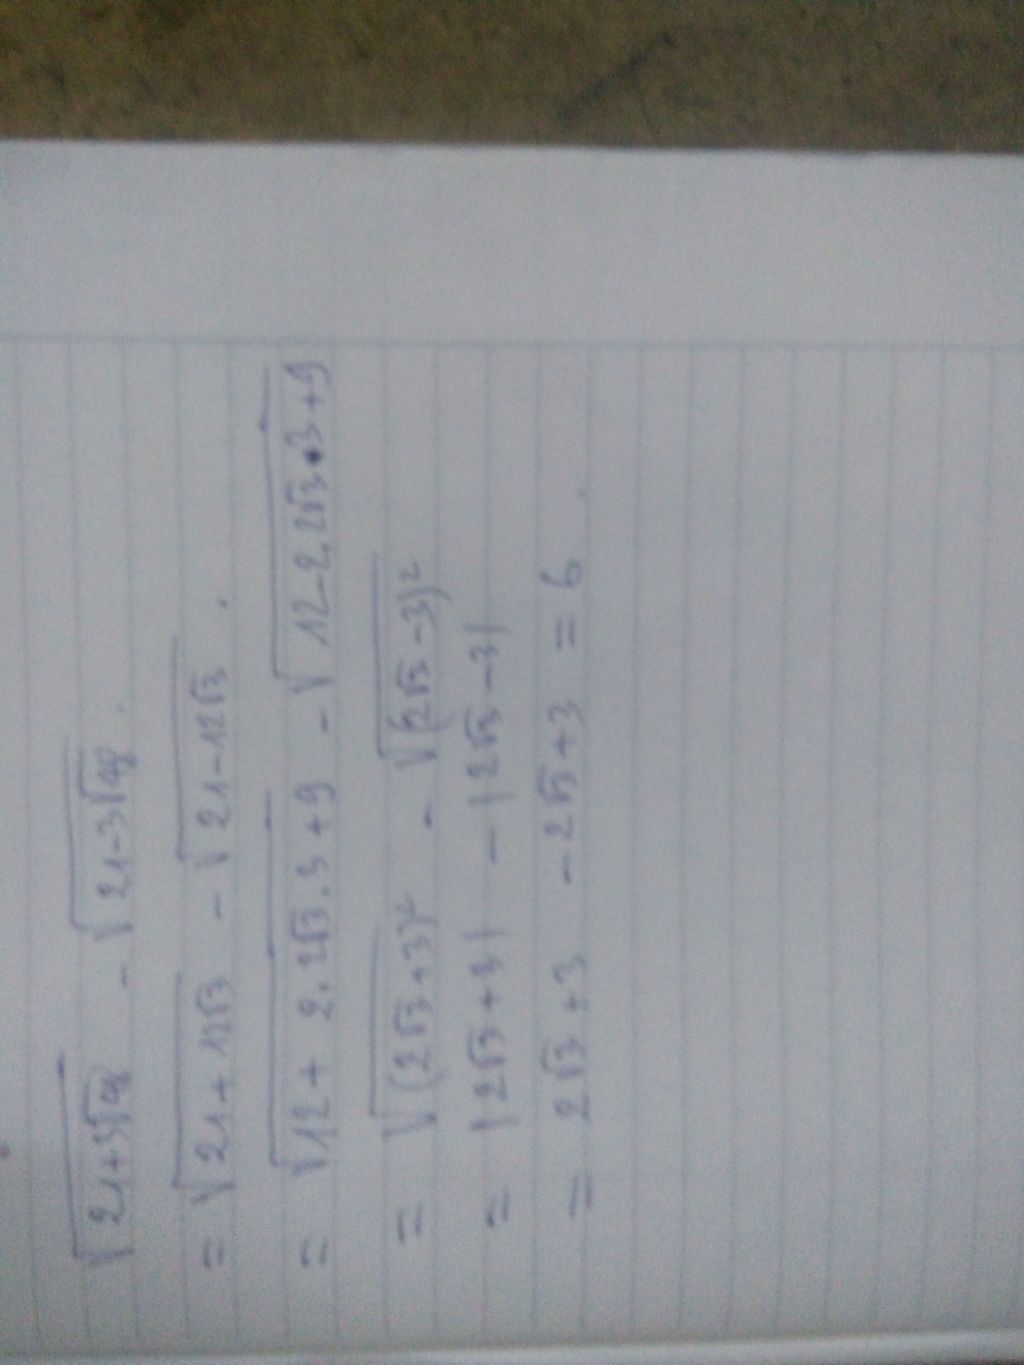 √(21+3√48) - √(21-3√48).
= √(21+12√3) - √(21-12√3).
= √(12+ 2.2√3.3+9) - √(12-2.2√3.3+9)
= √((2√3+3)²) - √((2√3-3)²)
= |2√3+3| - |2√3-3|
= 2√3+3 -2√3+3 = 6